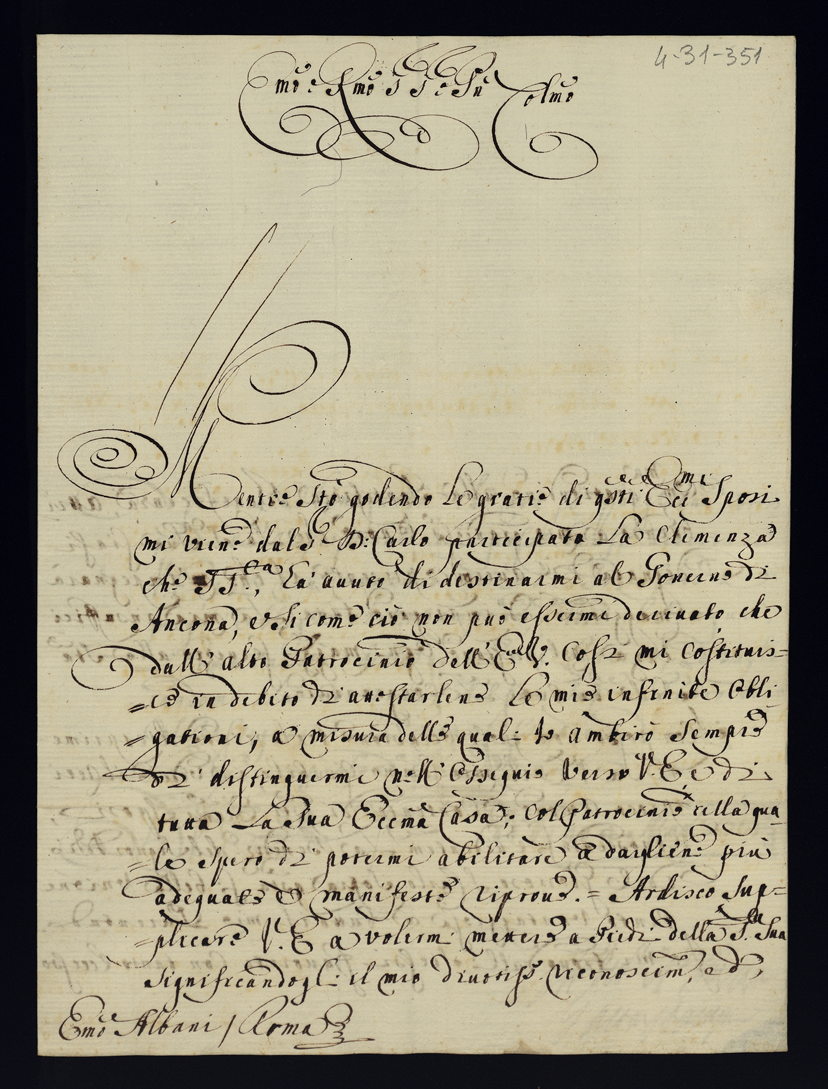 4-31-351
Emo e Rmo Sig.e Sig.e Pñe Colmo
Mentre stò godendo le gratie di qsti Ecc.mi Sposi
mi viene dal S.r D: Carlo participata la Clemenza
che S. S.tà, hà auuto di destinarmi al Gouerno di
Ancona, e si come ciò non può essermi deriuato che
dall' alto Patrocinio dell' E. V. così mi costituis=
=ce in debito di attestarlene le mie infinite obli
=gationi, a misura delle quali io ambirò sempre
di distinguermi nell' ossequio verso V. E. e di
tutta la Sua Eccma Casa; col Patrocinio della qua=
=le spero di potermi abilitare a dargliene più
adequate e manifeste riproue. = Ardisco sup=
=plicare V. E. a volermi mettere a Piedi della S.tà Sua
significandogli il mio diuotiss. riconoscim., ed,
Emo Albani / Roma